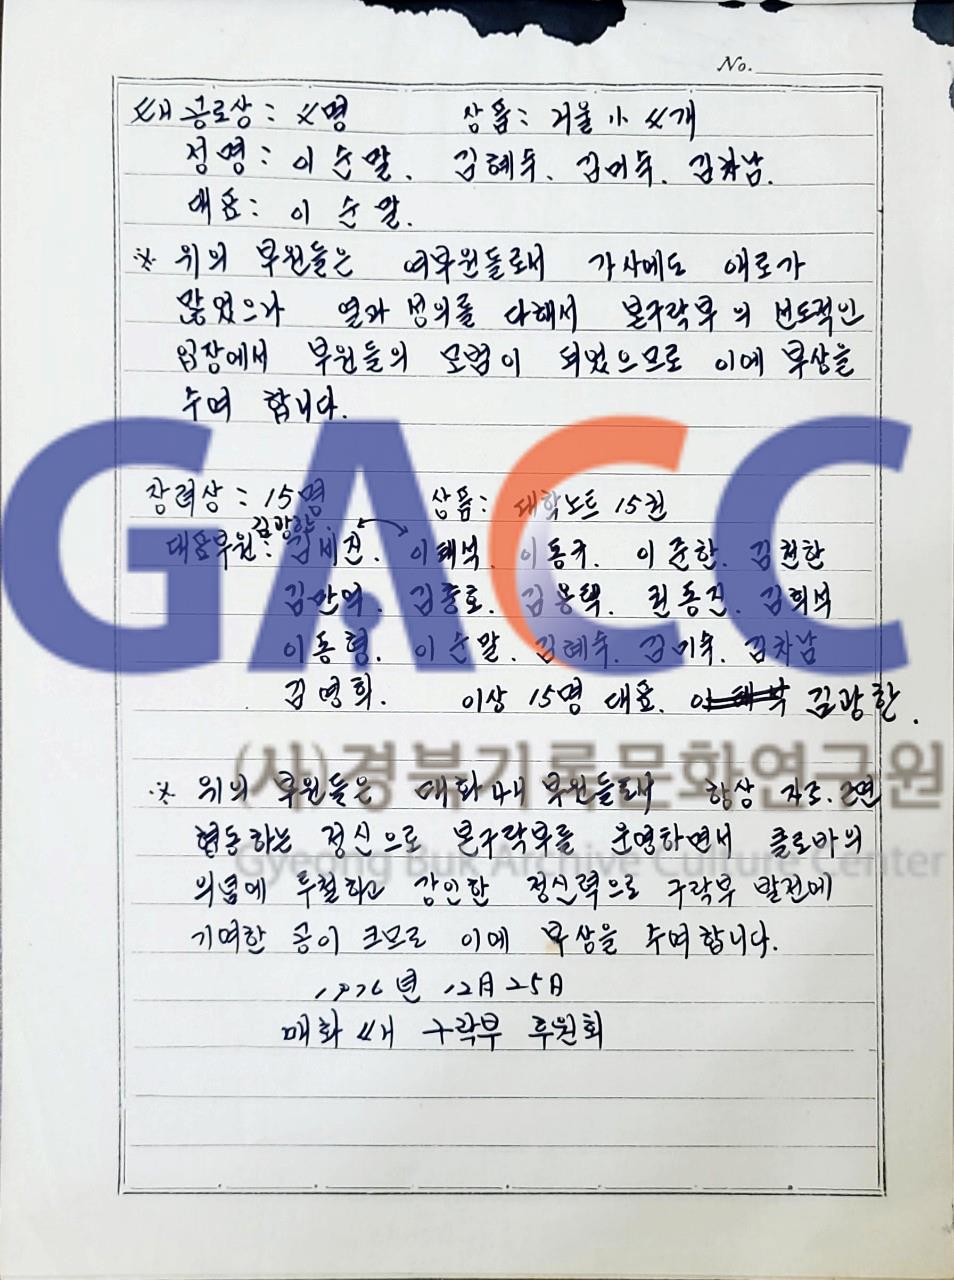 No.
4H 공로상 : 4명 상품 : 거울 小 4개
정명 : 이순말. 김혜숙. 김미숙. 김차남.
대표 : 이순말.
※ 위의 부원들은 여부원들로서 가사에도 애로가
많았으나 열과 성의를 다해서 본구락부의 선도적인
입장에서 부원들의 모범이 되었으므로 이에 부상을
수여 합니다.
장려상 : 15명 상품 : 대학노트 15권
김광한
대표부원 : 이태석. 이동구. 이준한. 김천한
김만억. 김종호. 김용택. 권동진. 김희석
이동형. 이순말. 김혜숙. 김미숙. 김차남
김명희. 이상 15명 대표. 김광한.
※ 위의 부원들은 매화 4H 부원들로서 항상 자조.
협동하는 정신으로 본구락부를 운영하면서 클로바의
의념에 투철하고 강인한 정신력으로 구락부 발전에
기여한 공이 크므로 이에 부상을 수여합니다.
1976년 12月 25日
매화 4H 구락부 후원회
GACC
(사)경북기록문화연구원
Gyeong Buk Archive Culture Center